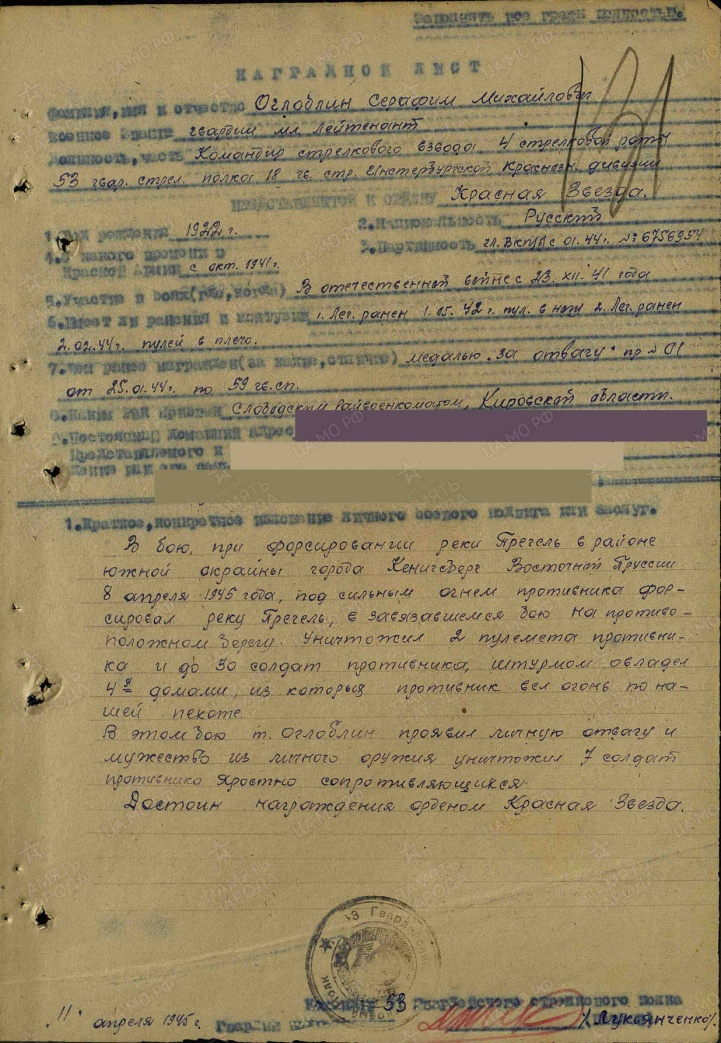 Заполнять все графы полностью.
НАГРАДНОЙ ЛИСТ
Фамилия, имя и отчество Оглоблин Серафим Михайлович
Военное звание гвардии мл. лейтенант
Должность, часть Командир стрелкового взвода 4 стрелковой роты
53 гвар. стрел. полка 18 гв. стр. Инстербургской Краснозн. дивизии
Представляется к ордену Красная Звезда.
1. Год рождения 1922 г. 2. Национальность Русский
4. С какого времени в 3. Партийность чл. ВКП/б с 01.44г. № 6756954
Красной Армии с окт. 1941г.
5. Участие в боях (где, когда) В отечественной войне с 23.XII.41 года
6. Имеет ли ранения и контузии 1. Лег. ранен 1.05.42г. пул. в ногу 2. Лег. ранен
2.02.44г. пулей в плечо.
7. Чем ранее награжден (за какие, отличия) медалью "за отвагу" пр № 01
от 25.01.44г. по 59 гв.сп.
8. Каким РВК призван Слободским Райвоенкоматом, Кировской области.
9. Постоянный домашний адрес
Представляемого к
1. Краткое, конкретное изложение личного боевого подвига или заслуг.
В бою, при форсировании реки Прегель в районе
южной окраины города Кенигсберг Восточной Пруссии
8 апреля 1945 года, под сильным огнем противника фор-
сировал реку Прегель, в завязавшемся бою на противо-
положном берегу. Уничтожил 2 пулемета противни-
ка и до 30 солдат противника, штурмом овладел
4я домами, из которых противник вел огонь по на-
шей пехоте.
В этом бою т. Оглоблин проявил личную отвагу и
мужество из личного оружия уничтожил 7 солдат
противника яростно сопротивляющихся.
Достоин награждения орденом Красная Звезда.
53 Гвардейского стрелкового полка
"11" апреля 1945 г. Гвардии /Лукьянченко/.